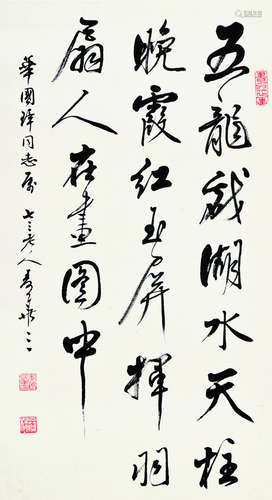 五龍戲湖水天柱
晚霞紅玉屏揮羽
扇人在畫圖中
華國璋同志屬 七三老人